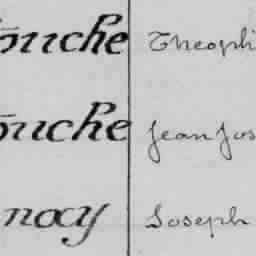 ouche Theophi
ouche Jean Jos
nacy Joseph